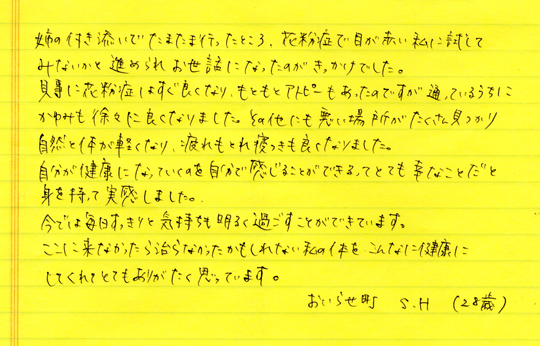 姉の付き添いでたまたま行ったところ、花粉症で目が赤い私に試して
みないかと進められお世話になったのがきっかけでした。
見事に花粉症はすぐ良くなり、もともとアトピーもあったのですが通っているうちに
かゆみも徐々に良くなりました。その他にも悪い場所がたくさん見つかり
自然と体が軽くなり、疲れもとれ寝つきも良くなりました。
自分が健康になっていくのを自分で感じることができるってとても幸なことだと
身を持って実感しました。
今では毎日すっきりと気持ちも明るく過ごすことができています。
ここに来なかったら治らなかったかもしれない私の体をこんなに健康に
してくれてとてもありがたく思っています。
おいらせ町 S.H (28歳)